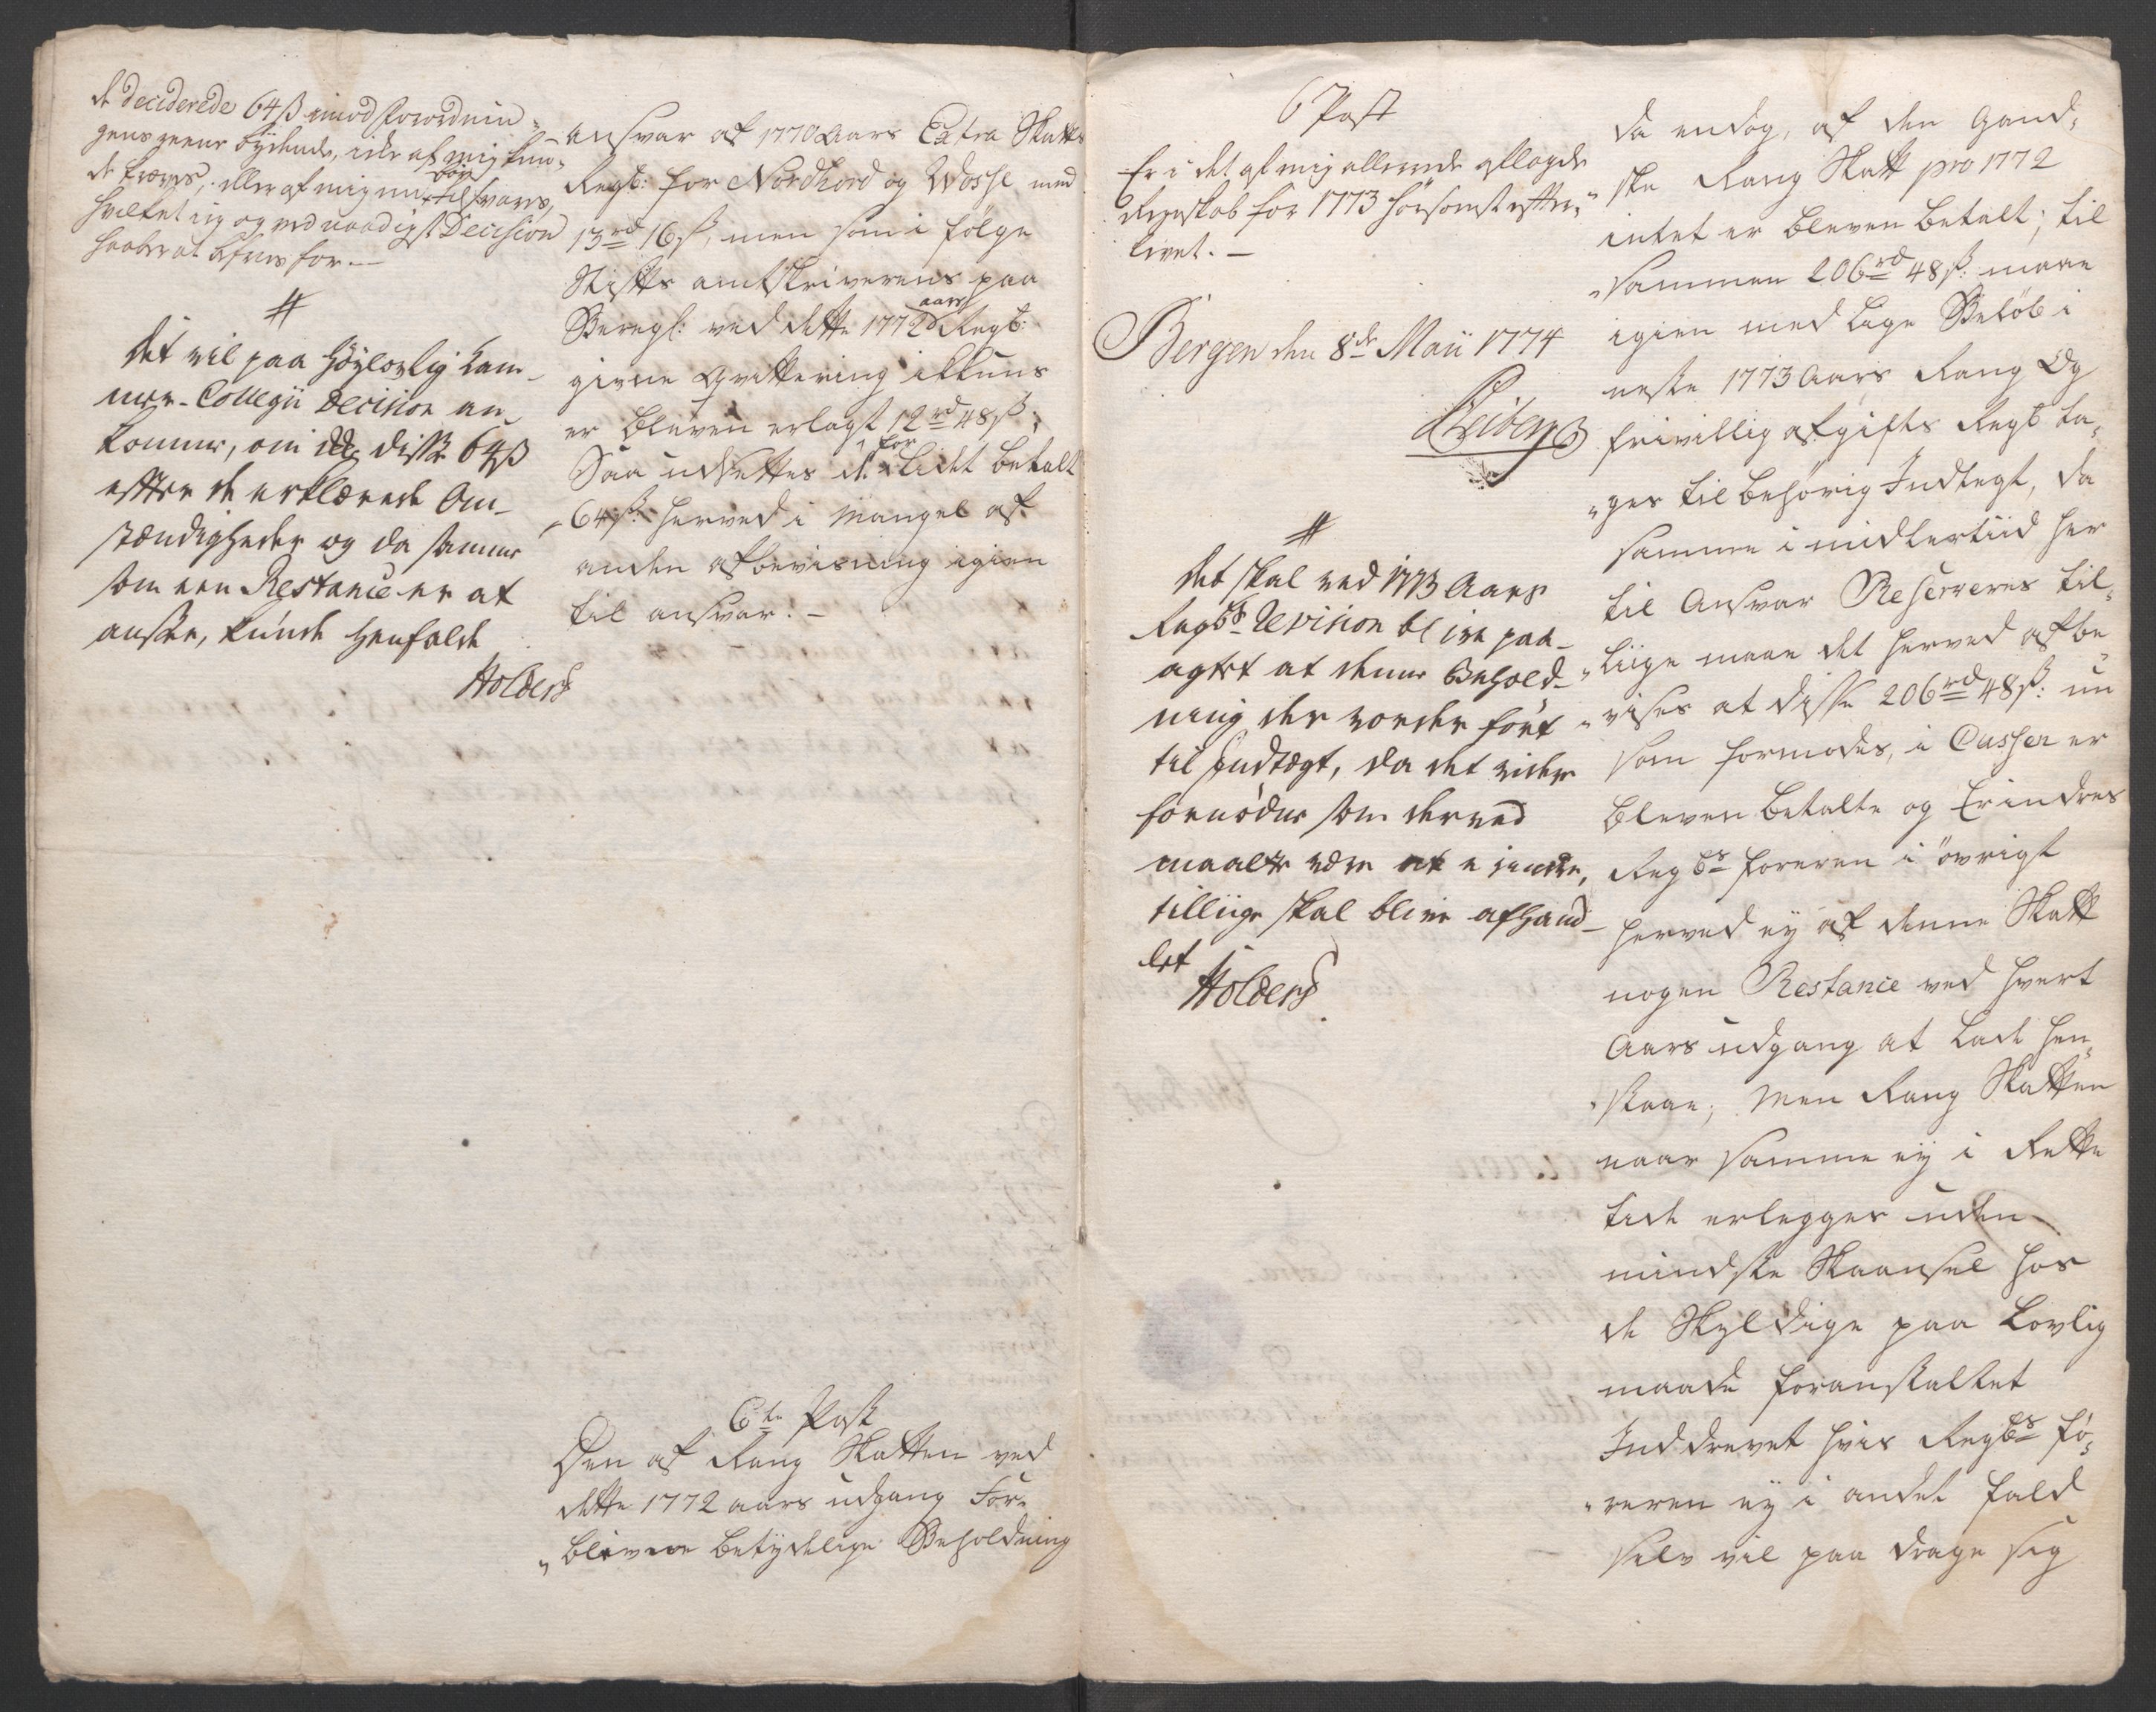 de deciderede 64 ß imod Forordnin-
gens geene bÿdende, ikke af mig kun-
de kræves, eller af mig nu bør tilsvares,
hvilket jeg og ved naadigst Decision
haaber at befries for.—
#
Det vil paa høÿlovlig Cam-
mer-Collegii Decision an-
komme, om disse 64 ß
efter de erklærede Om-
stændigheder og da samme
som een Restance er at
ansee, kunde henfalde
Holders
ansvar af 1770 Aars Extra Skatts
Regsk: for Nordhord og Wosse med
13 rd 16 ß, men som i følge
Stifts amtskriverens paa
Beregl: ved dette 1772 aars Regsk:
givne Qvittering ikkuns
er bleven erlagt 12 rd 48 ß;
Saa udsettes de for lidet betalt
64 ß: herved i Mangel af
anden afbeviisning igien
til ansvar.—
6te Post
Den af Rang Skatten ved
dette 1772 aars udgang For-
blevne betÿdelige Beholdning
6 Post
Er i det af mig allerede aflagde
Regnskab for 1773 hørsomst efter-
levet.—
Bergen den 8de Maii 1774
#
Det skal ved 1773 Aars
Regsk:s Revision blive paa-
agtet at denne Behold-
ning der vorder ført
til Indtægt, da det videre
fornødne som derved
maatte være at erindre,
tilliige skal blive afhand-
let
Holders
da endog, af den Gand-
ske Rang Skatt pro 1772
intet er bleven betalt; til
sammen 206 rd 48 ß: maae
igien med lige Beløb i
neste 1773 Aars Rang Og
frivillig afgifts Regsk ta-
ges til behørig Indtegt, da
samme i midlertiid her
til Ansvar Reserveres til-
liige maae det herved afbe-
vises at disse 206 rd 48 ß: nu
som formodes, i Cassen er
bleven betalte og Erindres
Regsk:s føreren i øvrigt
herved eÿ af denne Skatt
nogen Restance ved hvert
Aars udgang at lade hen-
staae; Men Rang Skatten
naar samme eÿ i Rette
tide erlegges uden
mindste Skaansel hos
de Skyldige paa Lovlig
maade foranstaltet
Inddrevet hvis Regsk:s fø-
reren eÿ i andet fald
selv vil paa drage sig